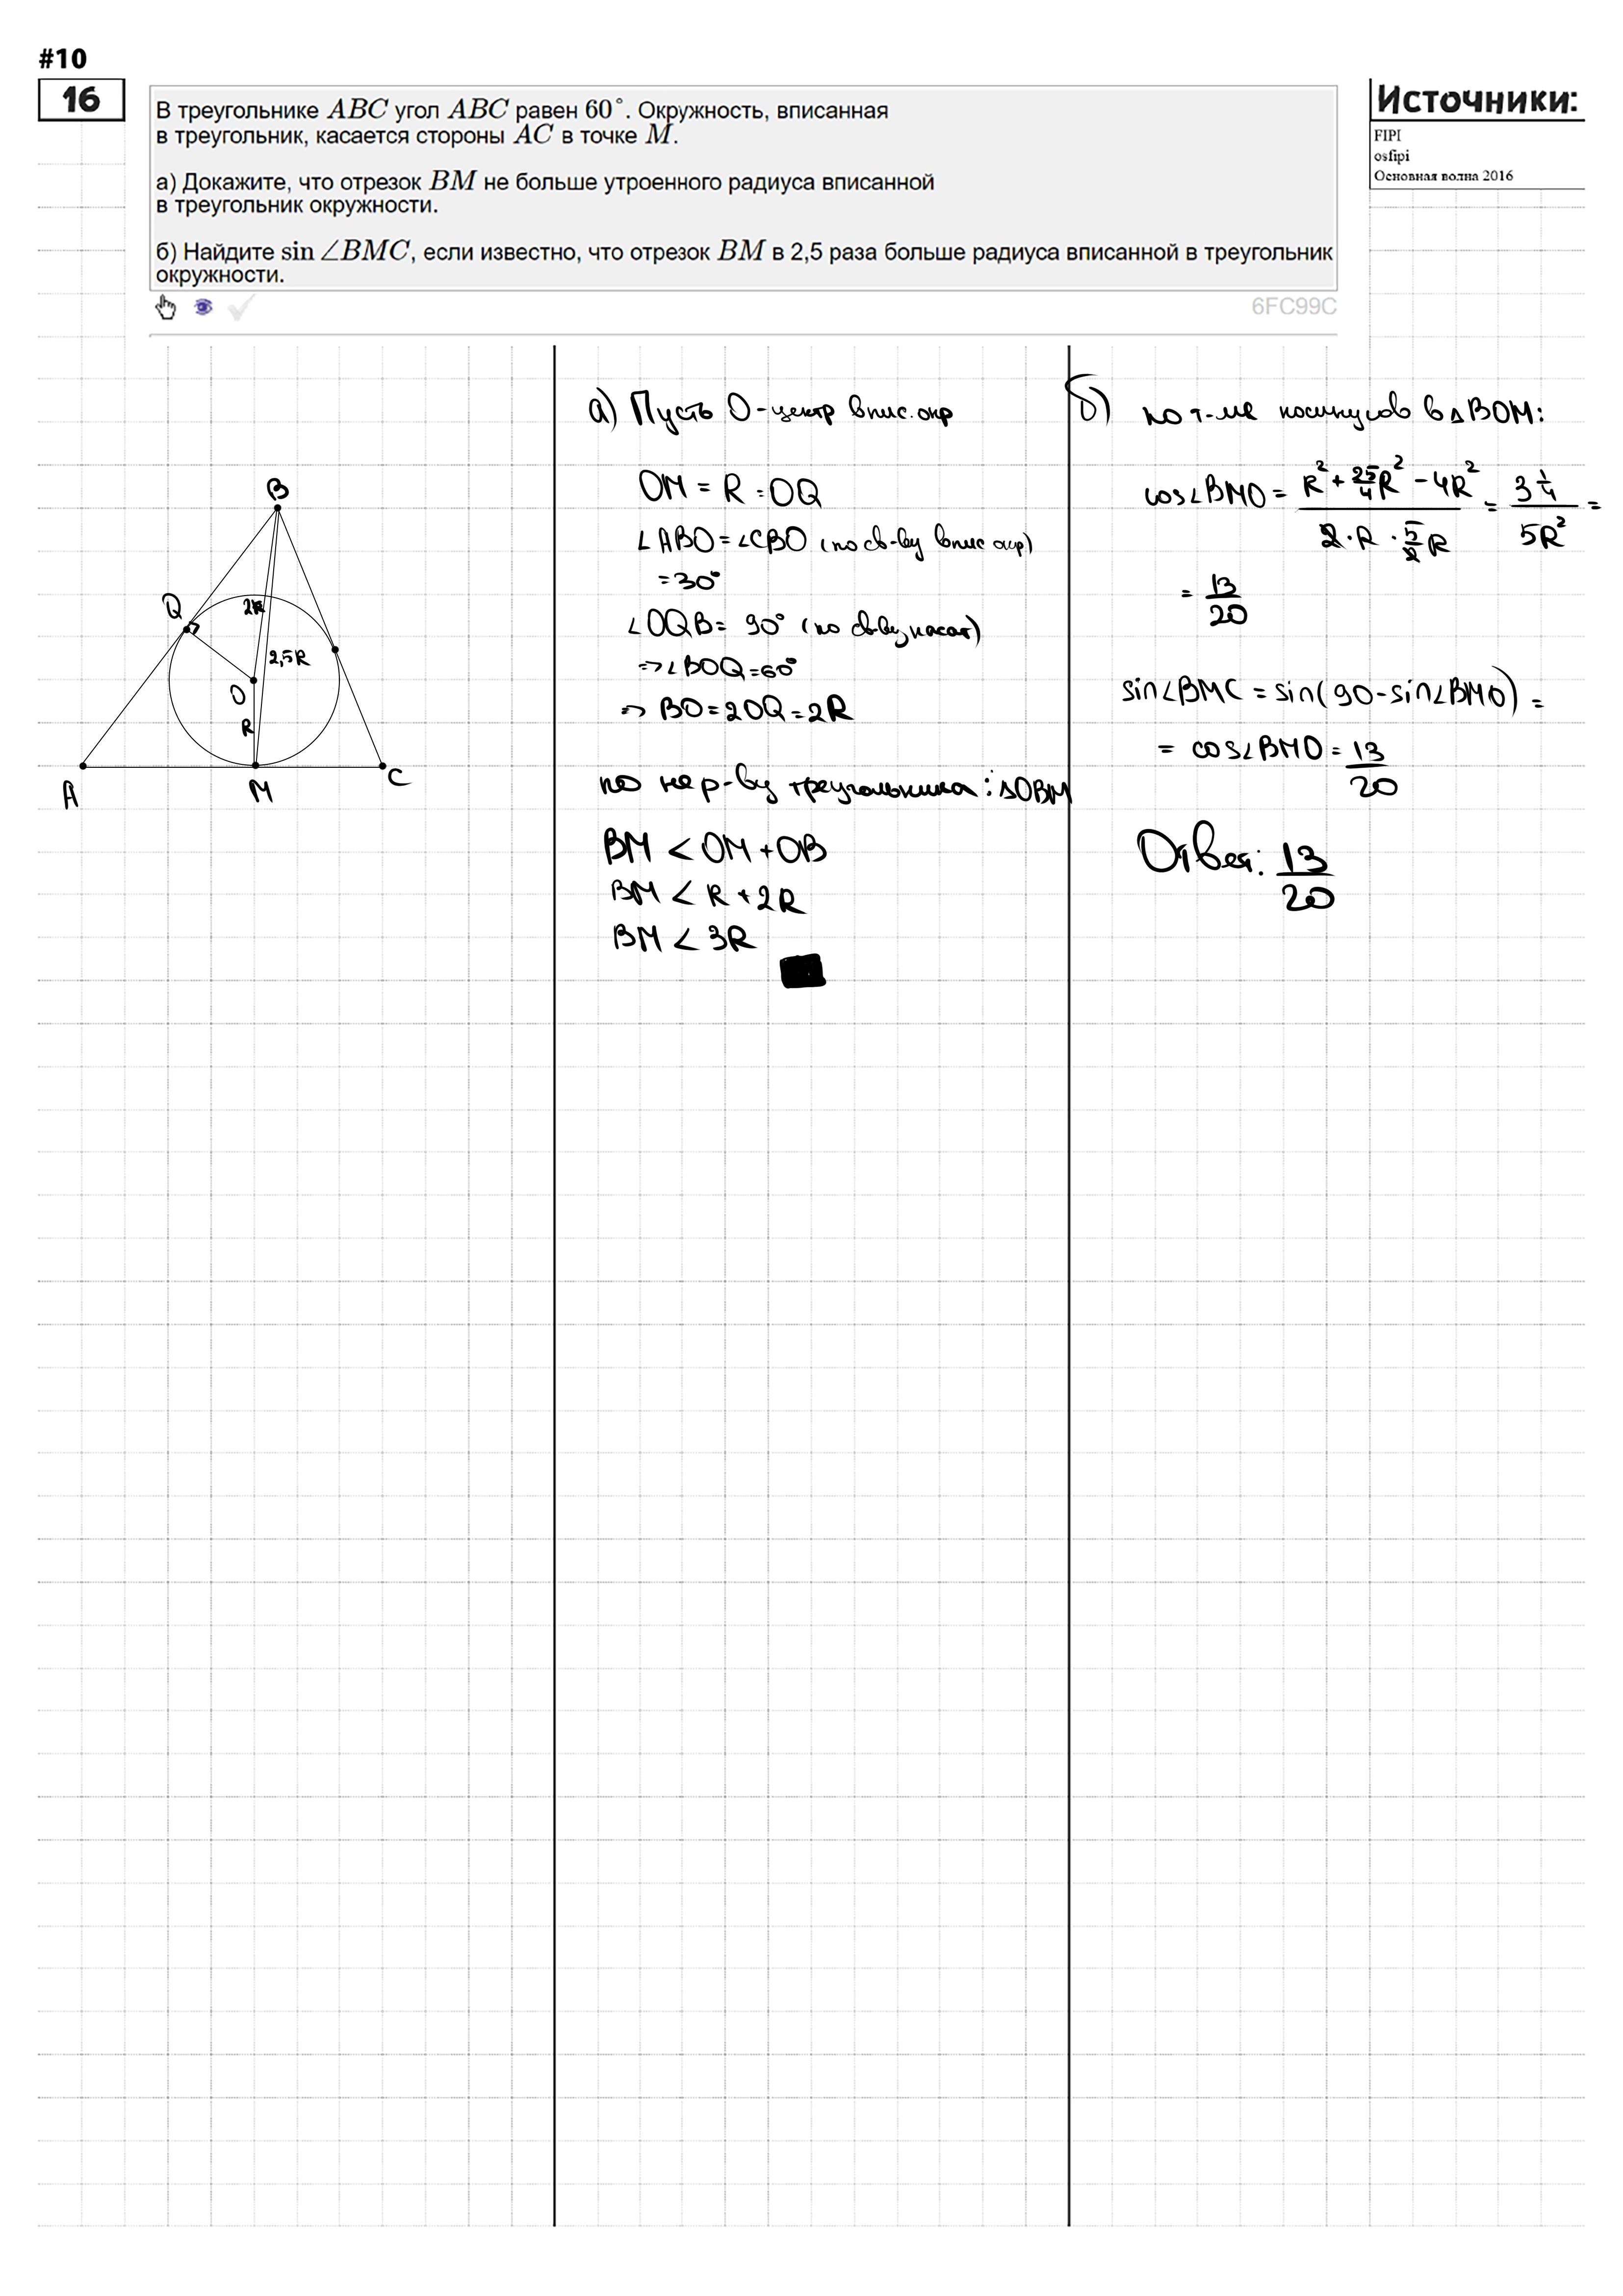 #10
16
В треугольнике ABC угол ABC равен 60°. Окружность, вписанная
в треугольник, касается стороны AC в точке M.
а) Докажите, что отрезок BM не больше утроенного радиуса вписанной
в треугольник окружности.
б) Найдите sin ∠BMC, если известно, что отрезок BM в 2,5 раза больше радиуса вписанной в треугольник
окружности.
6FC99C
Источники:
FIPI
osfipi
Основная волна 2016
B
Q
2R
2,5R
O
R
A
M
C
а) Пусть O-центр впис. окр
OM = R = OQ
∠ABO = ∠CBO (по св-ву впис окр)
= 30°
∠OQB = 90° (по св-ву касат)
=> ∠BOQ = 60°
=> BO = 2OQ = 2R
по нер-ву треугольника: △OBM
BM < OM + OB
BM < R + 2R
BM < 3R
б) по т-ме косинусов в △BOM:
cos∠BMO = (R² + 25/4 R² - 4R²) / (2·R·5/2 R) = 3 1/4 / 5R² =
= 13/20
sin∠BMC = sin(90 - sin∠BMO) =
= cos∠BMO = 13/20
Ответ: 13/20